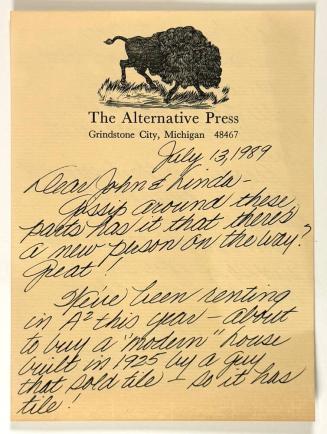 The Alternative Press
Grindstone City, Michigan 48467
July 13, 1989
Dear John & Linda -
Gossip around these
parts has it that there's
a new person on the way?
Great!
We've been renting
in A² this year - about
to buy a "modern" house
built in 1925 by a guy
that sold tile - so it has
tile!